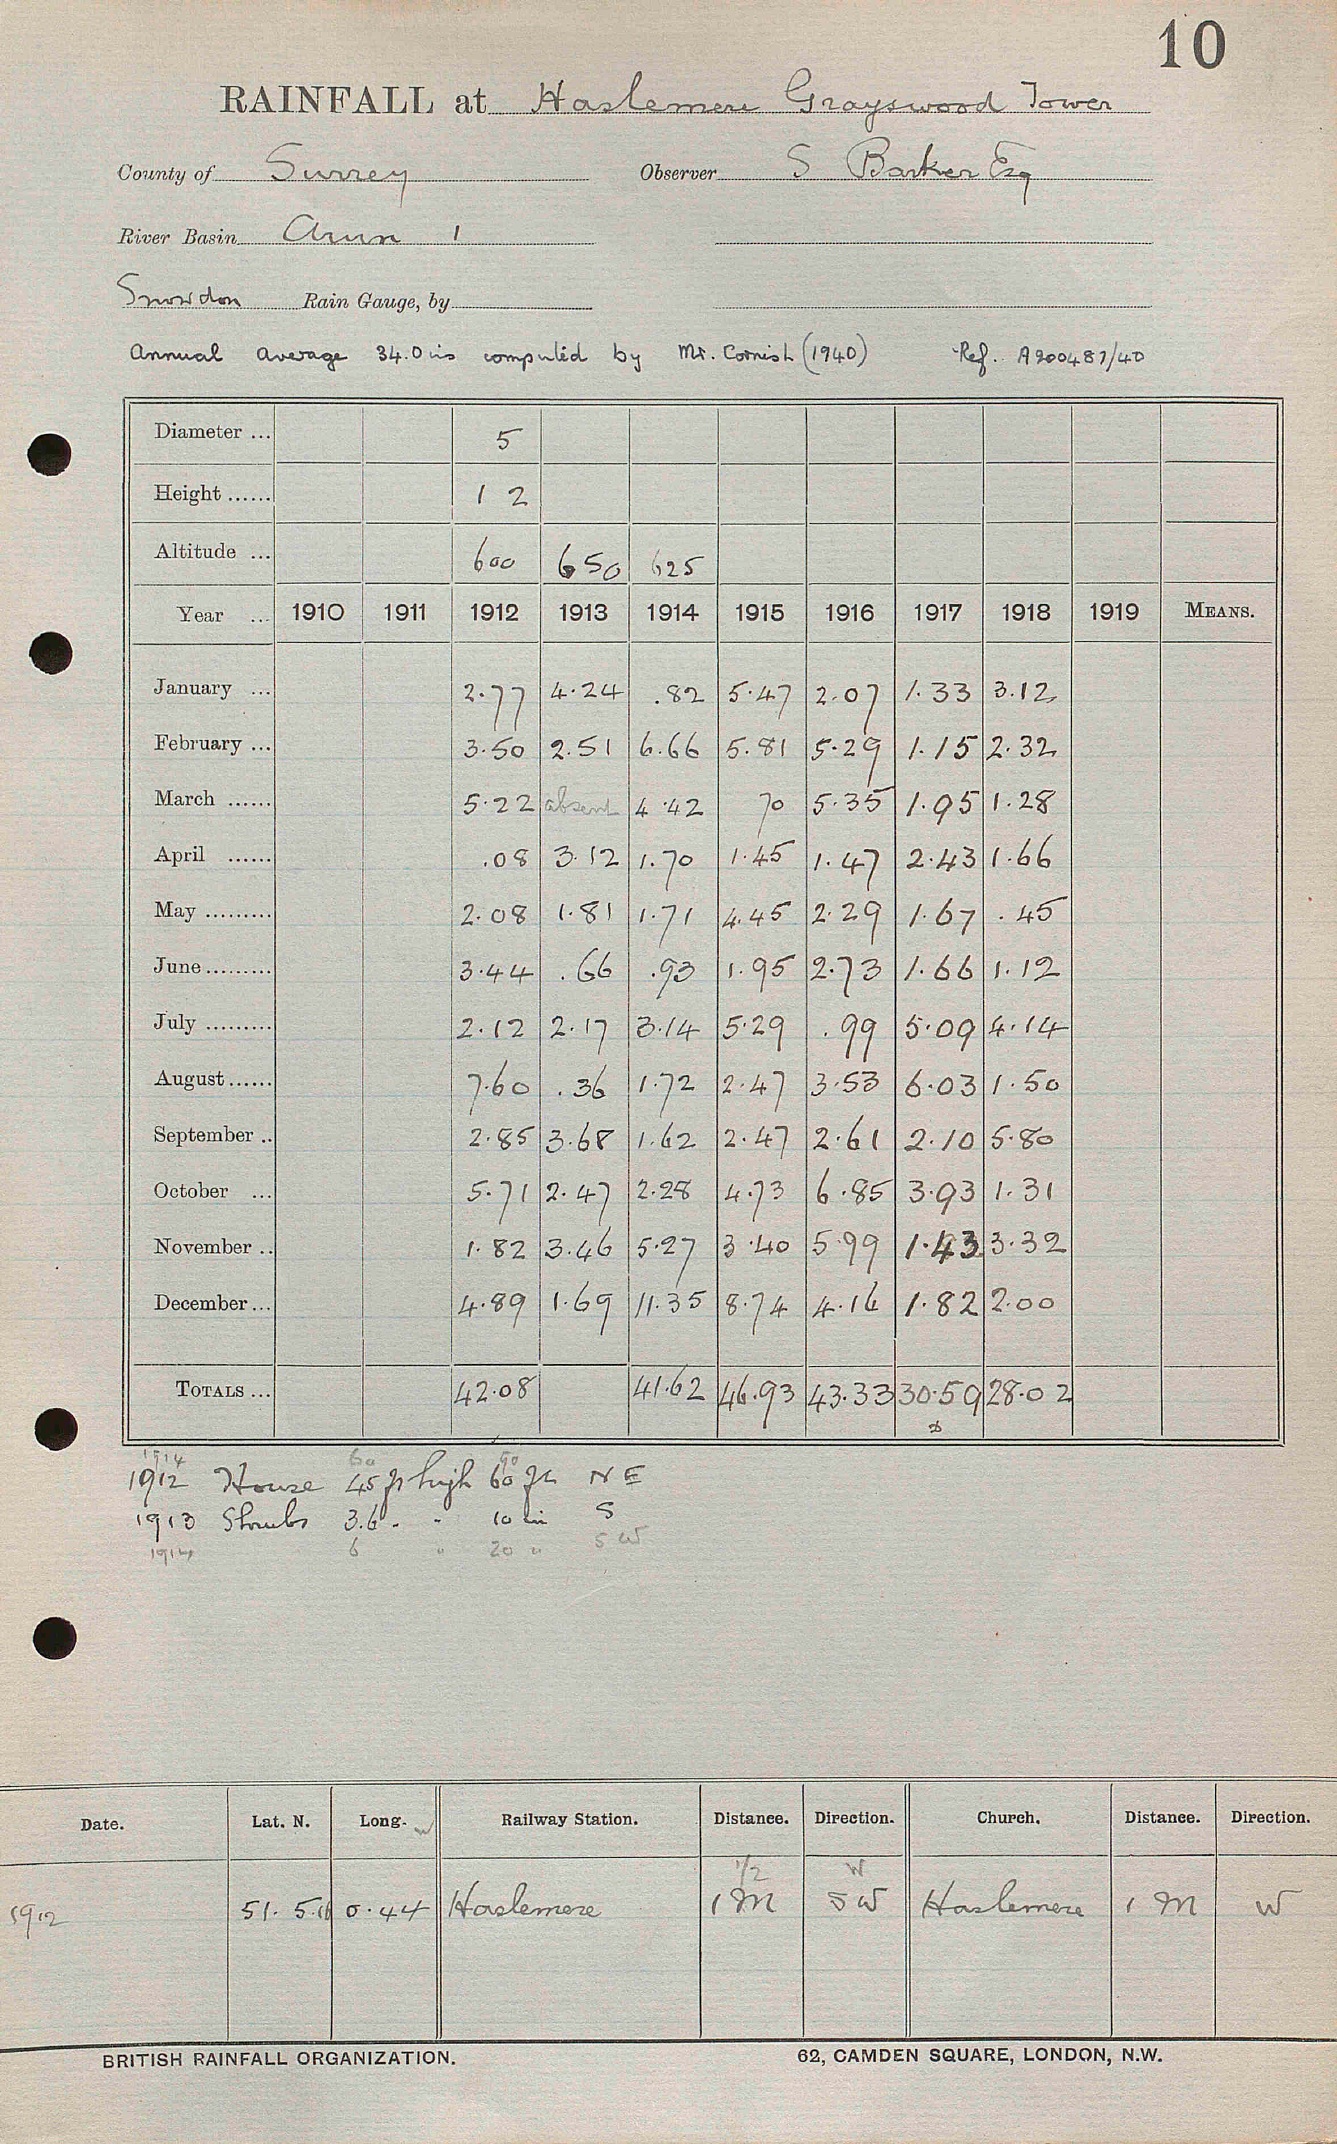 10
RAINFALL at Haslemere Grayswood Tower
County of Surrey Observer S Barker Esq
River Basin Arun 1
Snowdon Rain Gauge, by
Annual average 34.0 ins computed by Mr. Cornish (1940) Ref. A200487/40
Diameter ... 5
Height ...... 12
Altitude ... 600 650 625
Year ... 1910 1911 1912 1913 1914 1915 1916 1917 1918 1919 MEANS.
January ... 2.77 4.24 .82 5.47 2.07 1.33 3.12
February ... 3.50 2.51 6.66 5.81 5.29 1.15 2.32
March ...... 5.22 absent 4.42 70 5.35 1.95 1.28
April ...... .08 3.12 1.70 1.45 1.47 2.43 1.66
May ......... 2.08 1.81 1.71 4.45 2.29 1.67 .45
June ......... 3.44 .66 .93 1.95 2.73 1.66 1.12
July ......... 2.12 2.17 3.14 5.29 .99 5.09 4.14
August ...... 7.60 .36 1.72 2.47 3.53 6.03 1.50
September .. 2.85 3.68 1.62 2.47 2.61 2.10 5.80
October ... 5.71 2.47 2.28 4.73 6.85 3.93 1.31
November .. 1.82 3.46 5.27 3.40 5.99 1.43 3.32
December ... 4.89 1.69 11.35 8.74 4.16 1.82 2.00
TOTALS ... 42.08 41.62 46.93 43.33 30.59 28.02
1914 60 90
1912 House 45 ft high 60 ft NE
1913 Shrubs 3.6 - - 10 in S
1914 6 " 20 " SW
Date. Lat. N. Long. W Railway Station. Distance. Direction. Church. Distance. Direction.
1/2 W
1912 51. 5. 0.44 Haslemere 1 M SW Haslemere 1 M W
BRITISH RAINFALL ORGANIZATION. 62, CAMDEN SQUARE, LONDON, N.W.